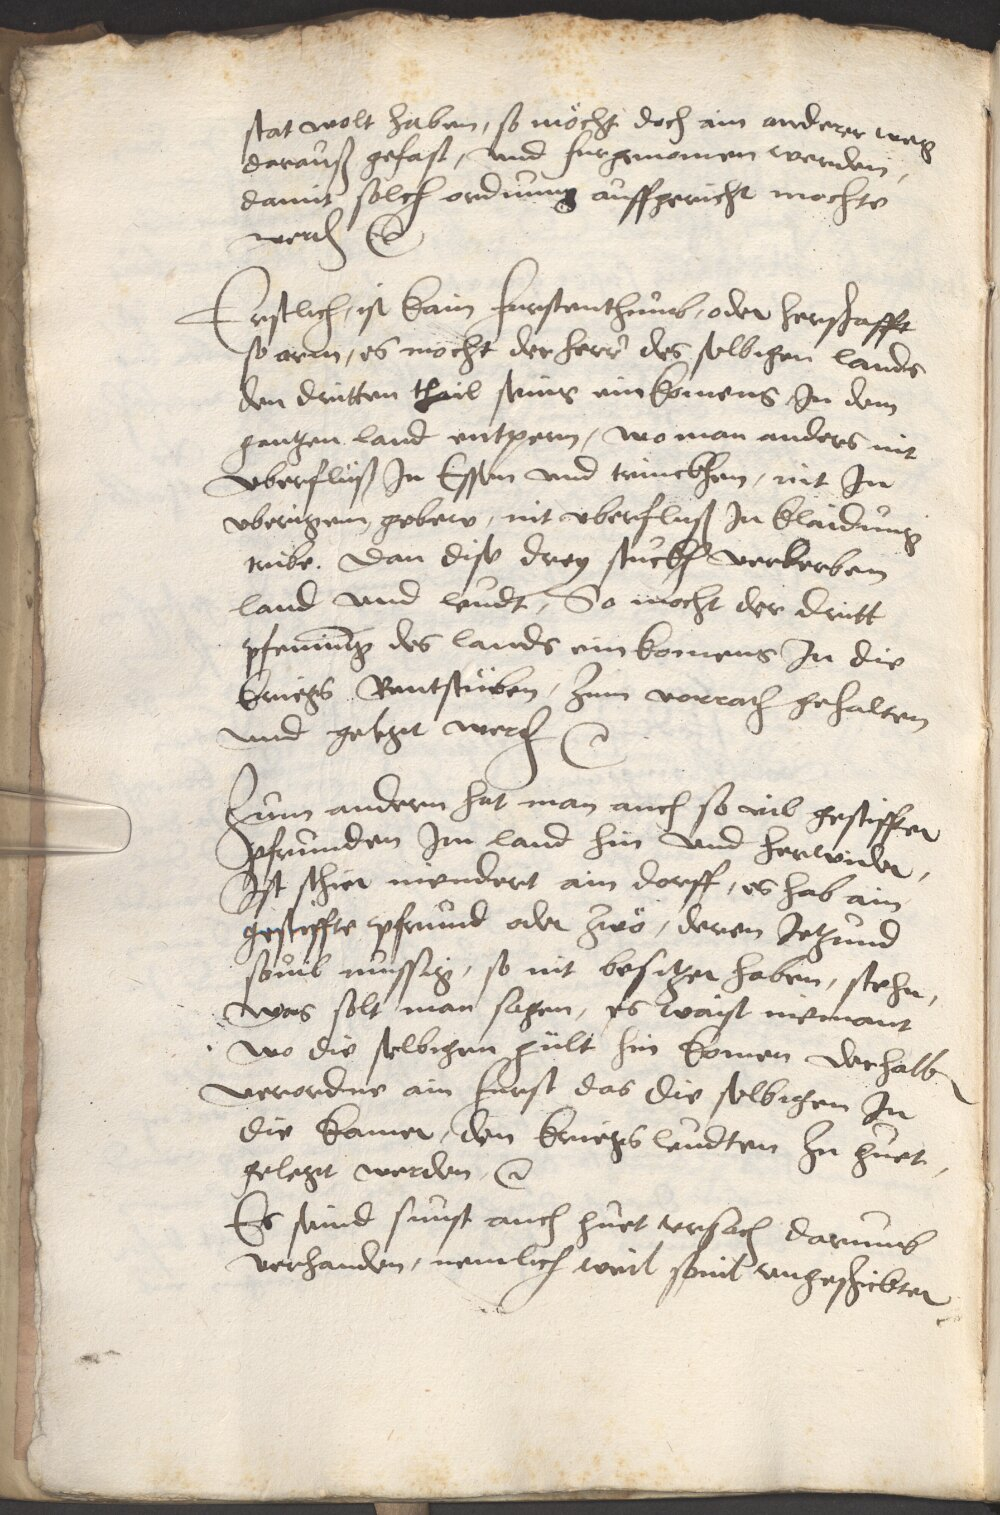 stat wolt haben, so möcht doch ain anderer weg
darauß gefast, vnd furgenomen werden,
damit solch ordnung auffgericht mochte
werden
Erstlich, ist kain furstenthumb, oder herschafft
so arm, es mocht der herr des selbigen lands
den dritten thail seins einkomens In dem
gantzen land entpern, wo man anders nit
vberfluß In Essen vnd trinckhen, nit In
vberigem gebew, nit vberfluß In klaidung
tribe. Dan dise drey stuckh verderben
land vnd leudt, So mocht der dritt
pfenning des lands einkomens In die
kriegs Rentstuben, zum vorrath gehalten
vnd gelegt werden
Zum andern hat man auch so vil gestiffter
pfrunden Im land hin vnd herwider,
Ist schier niendert ain dorff, es hab ain
gestiffte pfrund oder zwo, deren Jetzund
souil mussig, so nit besitzer haben, stehn,
was solt man sagen, es waist niemant
wo die selbigen gült hin komen derhalb
verordne ain furst das die selbigen In
die kamer, den kriegs leudten zu guet,
gelegt werden
Es seind sunst auch guet vrsach darumb
verhanden, nemlich weil souil vngeschickter